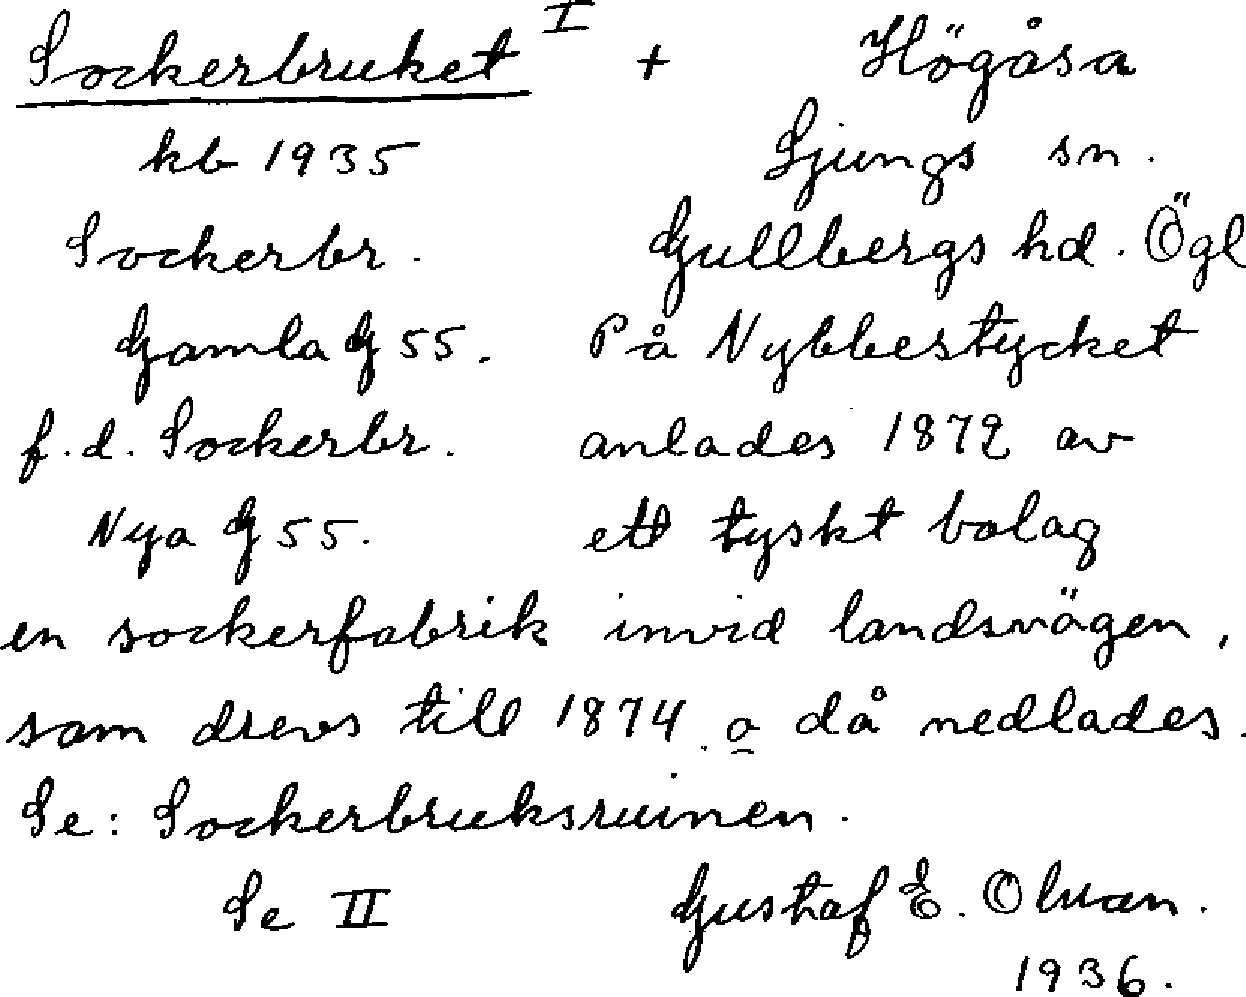 Sockerbruket I + Högåsa
kb 1935 Ljungs sn.
Sockerbr. Gullbergs hd. Ögl
Gamla G 55. På Nybbestycket
f.d. Sockerbr. anlades 1872 av
Nya G 55. ett tyskt bolag
en sockerfabrik invid landsvägen,
som drevs till 1874 o då nedlades.
Se: Sockerbruksruinen.
Se II Gustaf E.
1936.